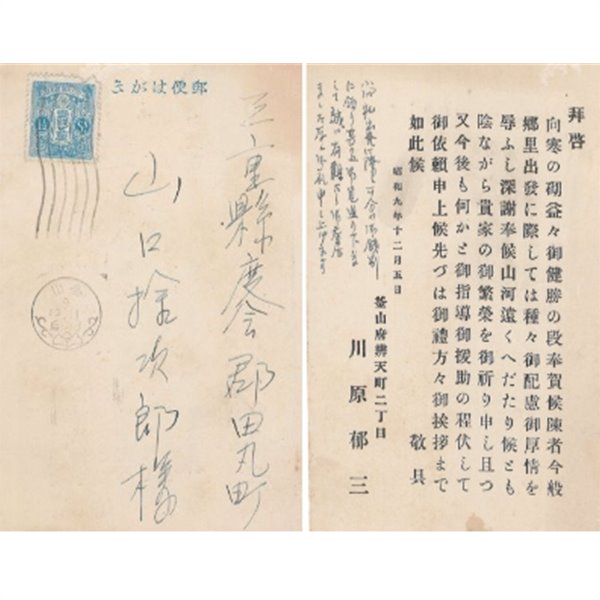 郵便はがき
三重縣度会郡田丸町
山口捨次郎様
拝啓
向寒の砌益々御健勝の段奉賀候陳者今般
郷里出發に際しては種々御配慮御厚情を
辱ふし深謝奉候山河遠くへだたり候とも
陰ながら貴家の御繁榮を御祈り申し且つ
又今後も何かと御指導御援助の程伏して
御依頼申上候先づは御禮方々御挨拶まで
如此候
敬具
昭和九年十二月五日
釜山府辨天町二丁目
川原郁三